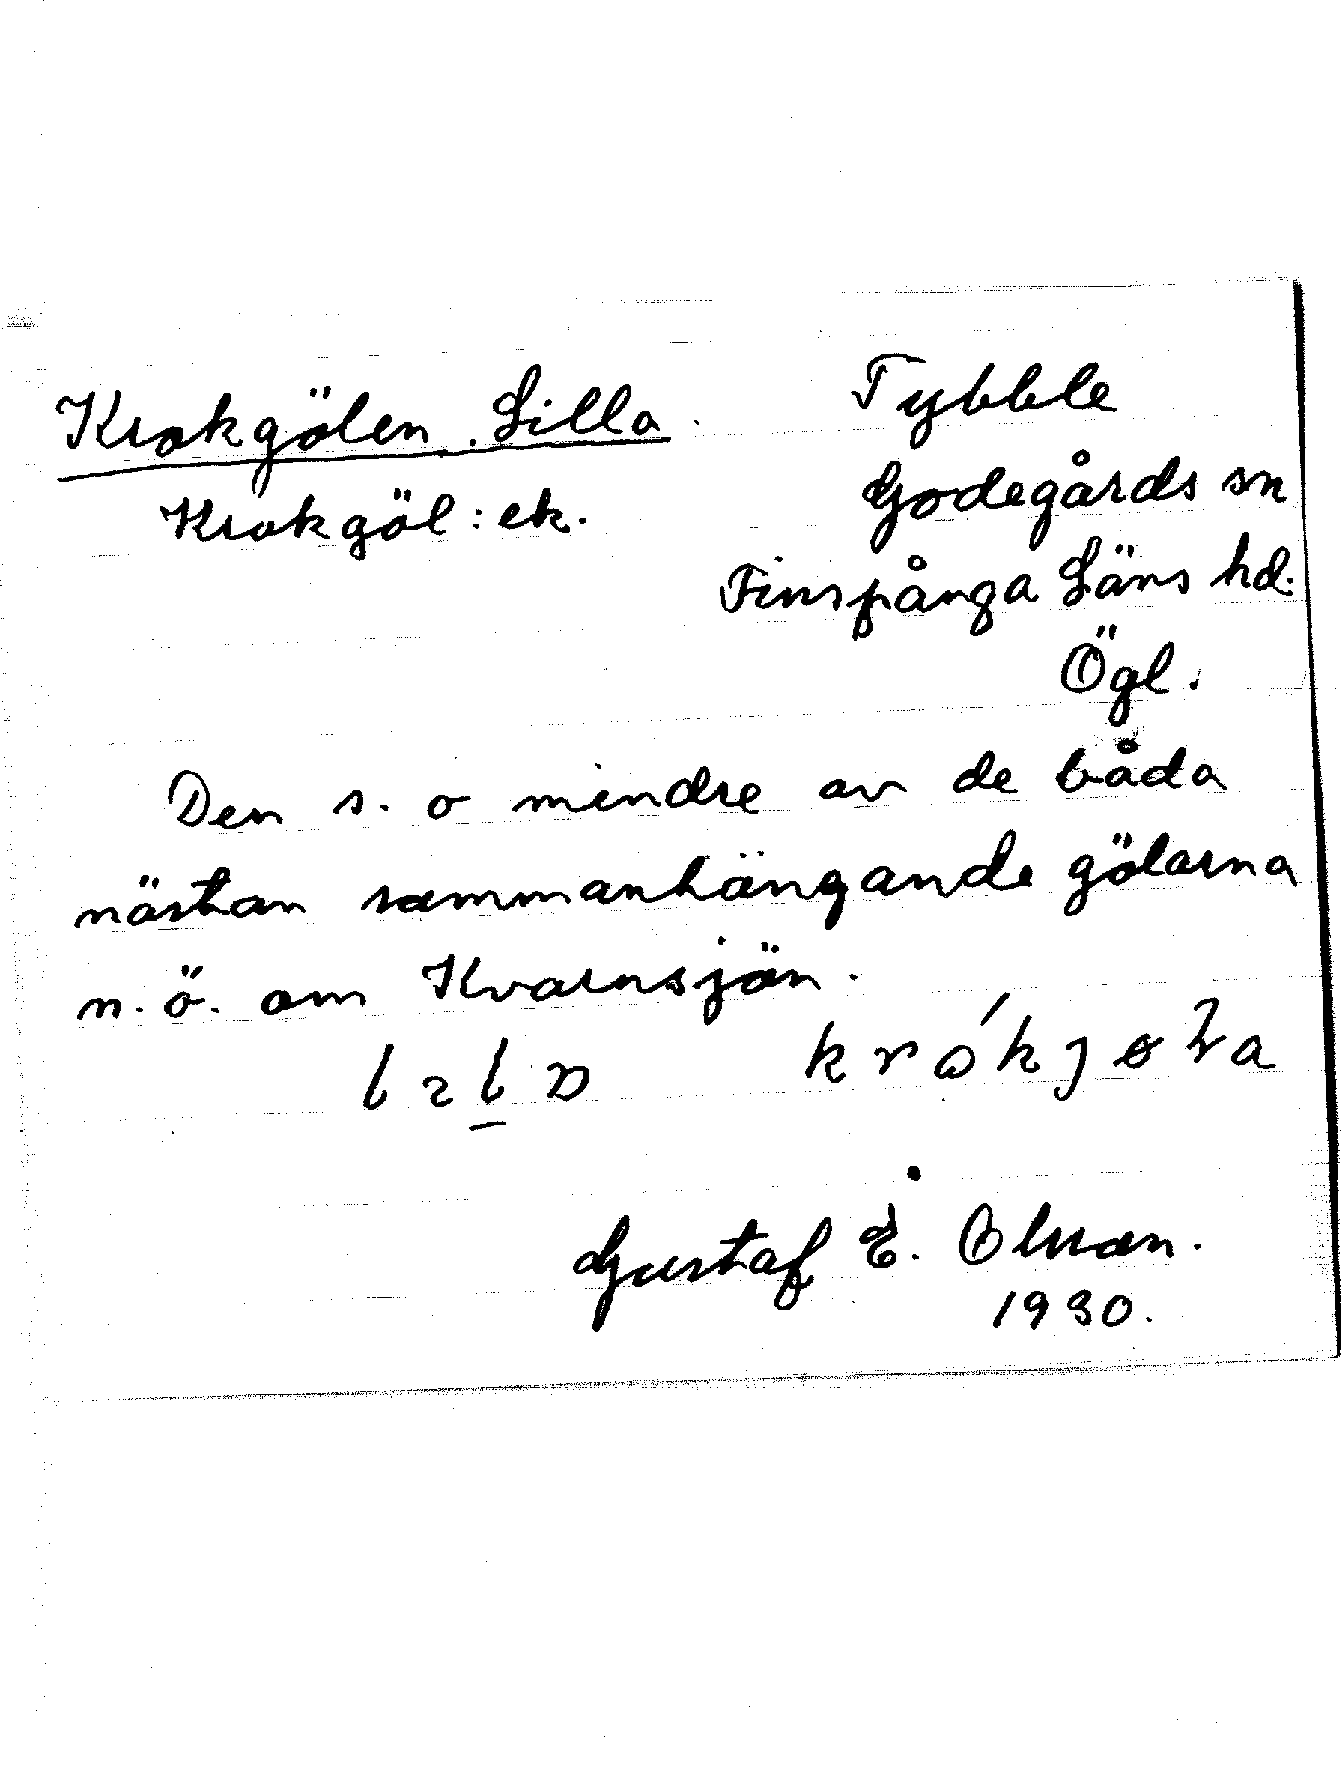 Krokgölen, Lilla.
Krokgöl: ek.
Tybble
Godegårds sn
Finspånga Läns hd.
Ögl.
Den s. o mindre av de båda
nästan sammanhängande gölarna
n. ö. om Kvarnsjön.
Gustaf E. Olsson.
1930.